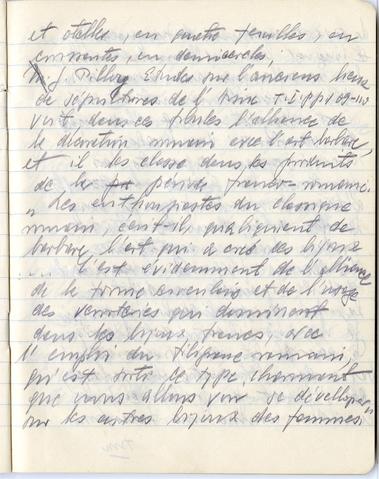 et étoilées, en quatre feuilles, en
croissantes, en demicercles,
M. J. Pilloy Etudes sur l'anciens lieux
de sépultures de l'Aisne T. I p.p.
voit dans ces fibules l'alliance de
la décoration romain avec l'art barbare,
et il les classe dans les produits
de la période franco-romaine.
" Les enthousiastes du classique
romain, écrit-il, qualifient de
barbare l'art qui a créé ces bijoux
.... C'est évidemment de l'alliance
de la forme circulaire et de l'usage
des verroteries qui dominent
dans les bijoux francs, avec
l'emploi du filigrane romain,
qu'est sorti ce type charmant
que nous allons voir se développer
sur les autres bijoux des femmes